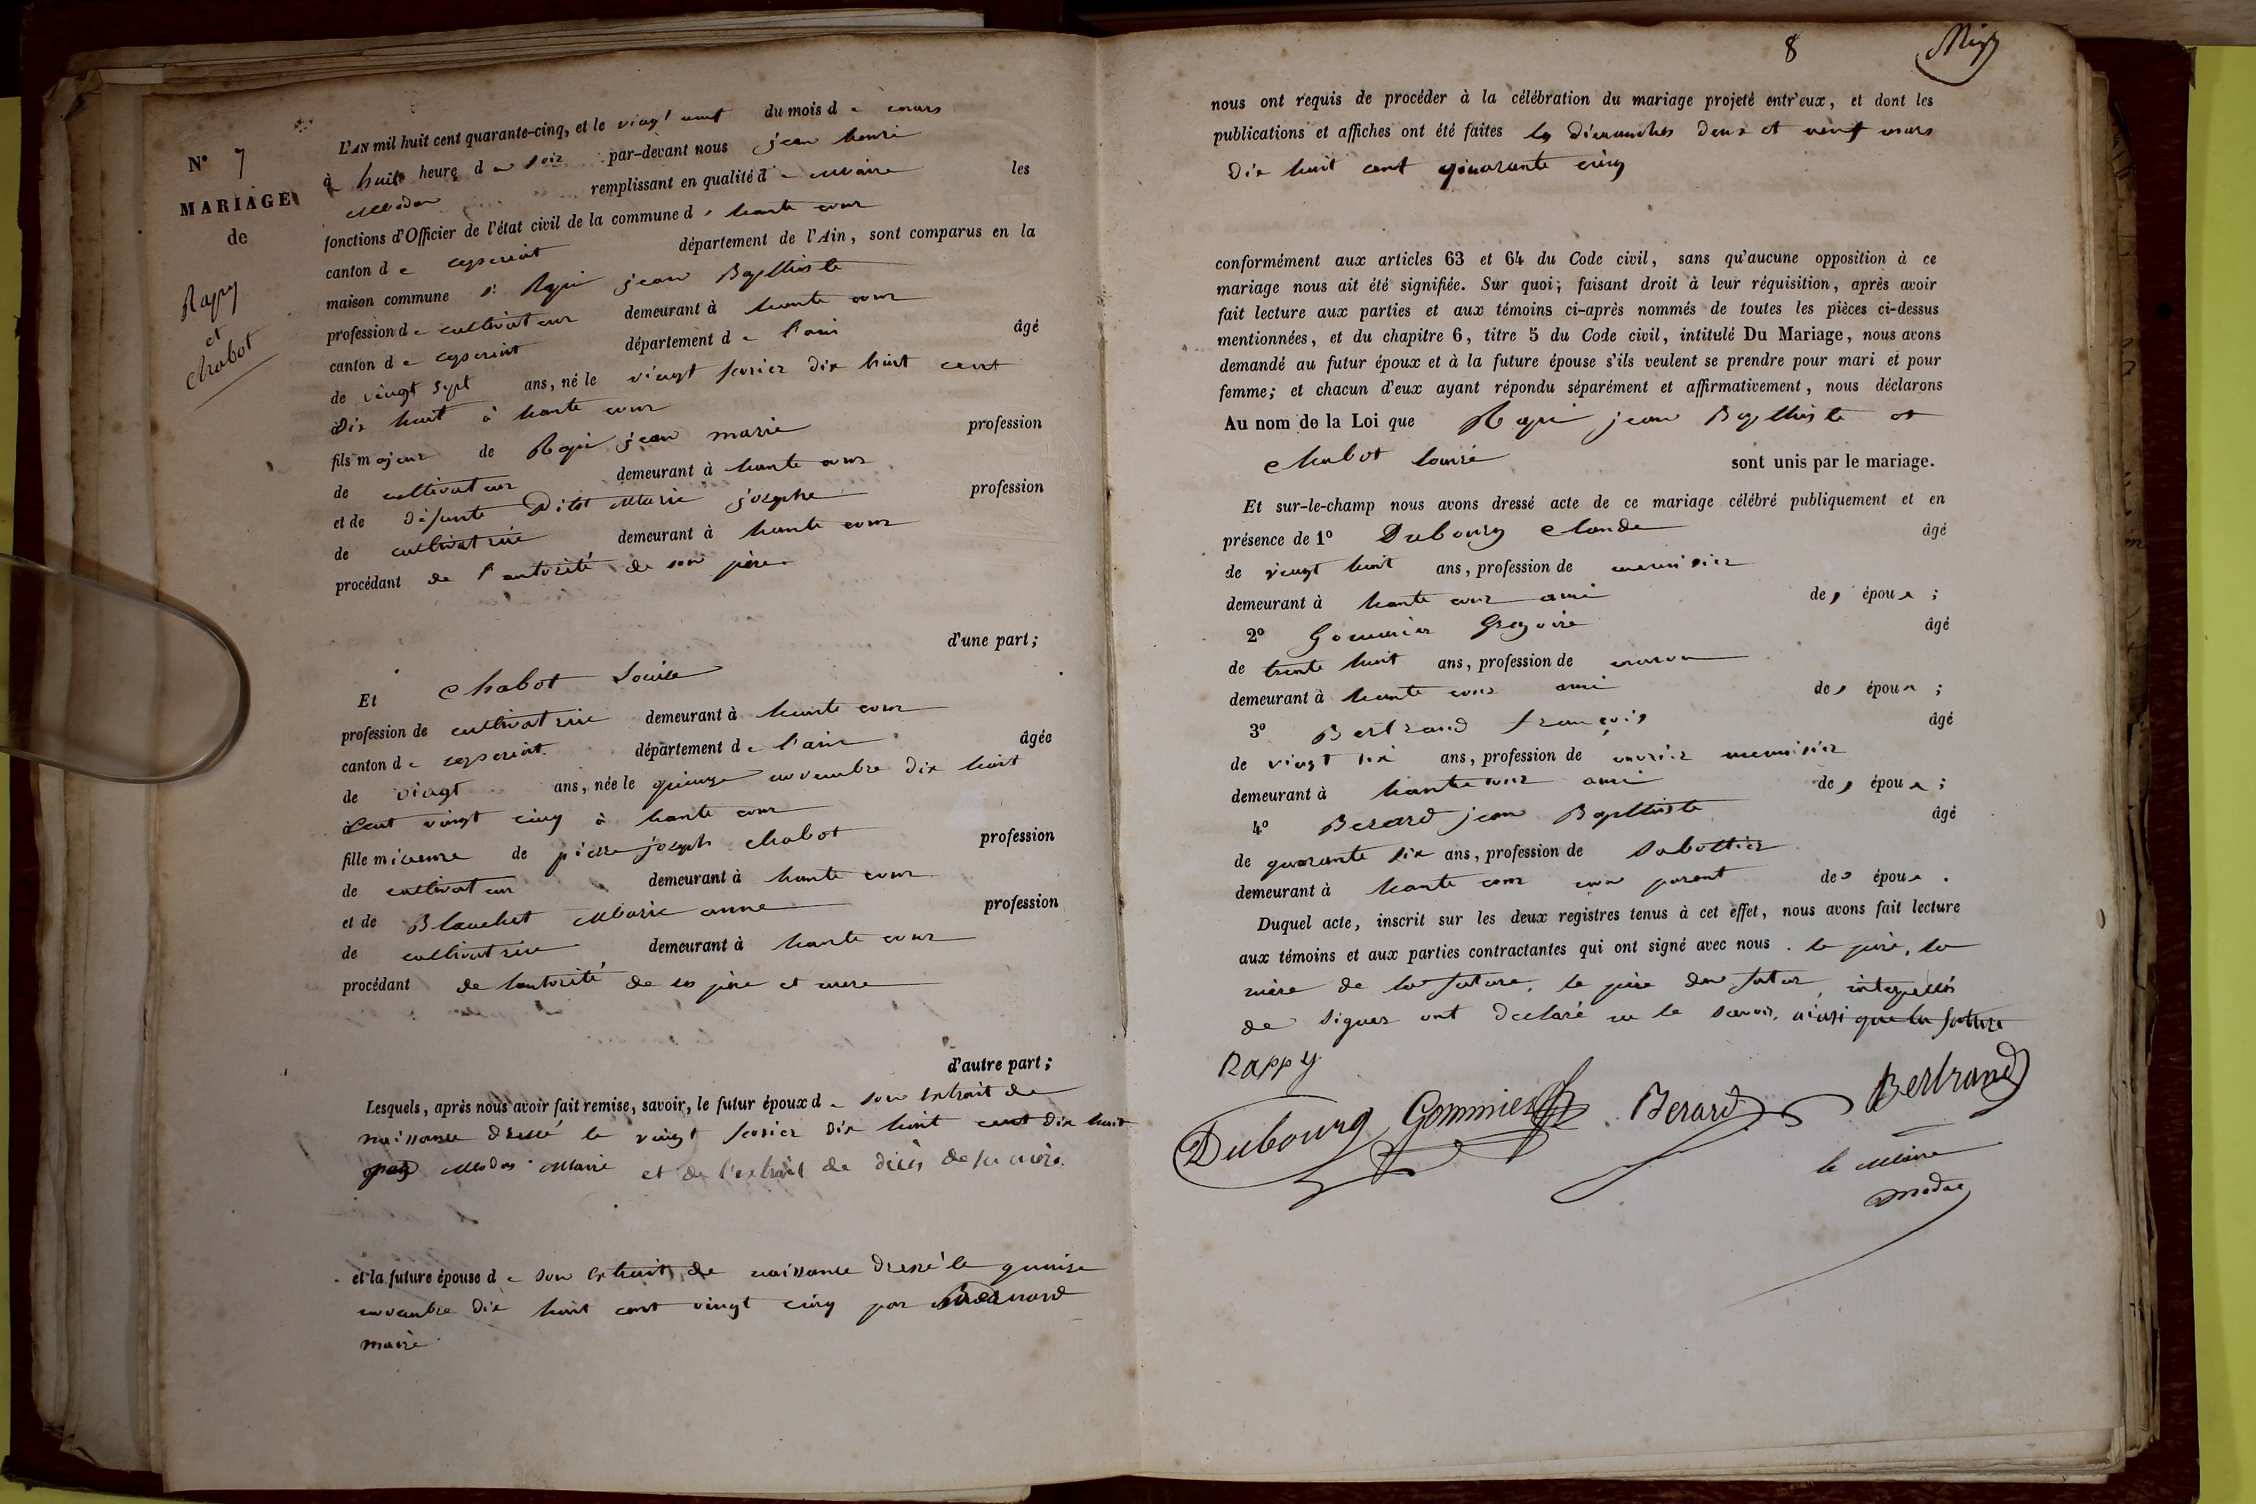 N° 7
MARIAGE
de
Rapy
et
Chabot
L'AN mil huit cent quarante-cinq, et le vingt neuf du mois de mars
à huit heure du soir par-devant nous jean henri
Modas remplissant en qualité de Maire les
fonctions d'Officier de l'état civil de la commune d haute cour
canton de ceyseriat département de l'Ain, sont comparus en la
maison commune Sr Rapi jean Bapthiste
profession de cultivateur demeurant à haute cour
canton de ceyseriat département de l'ain âgé
de vingt sept ans, né le vingt fevrier dix huit cent
dix huit à haute cour
fils majeur de Rapi jean marie profession
de cultivateur demeurant à haute cour
et de défunte Pitot Marie josephe profession
de cultivatrice demeurant à haute cour
procédant de l'autorité de son père
d'une part;
Et Chabot Louise
profession de cultivatrice demeurant à haute cour
canton de ceyseriat département de l'ain âgée
de vingt ans, née le quinze novembre dix huit
cent vingt cinq à haute cour
fille mineure de pierre joseph chabot profession
de cultivateur demeurant à haute cour
et de Blanchet Marie anne profession
de cultivatrice demeurant à haute cour
procédant de lautorité de ses père et mere
d'autre part;
Lesquels, après nous avoir fait remise, savoir, le futur époux de son extrait de
naissance dressé le vingt fevrier dix huit cent dix huit
par Modas Maire et de l'extrait de décès de sa mère
et la future épouse de son extrait de naissance dressé le quinze
novembre dix huit cent vingt cinq par Bernard
maire
8
nous ont requis de procéder à la célébration du mariage projeté entr'eux, et dont les
publications et affiches ont été faites les dimanches deux et neuf mars
dix huit cent quarante cinq
conformément aux articles 63 et 64 du Code civil, sans qu'aucune opposition à ce
mariage nous ait été signifiée. Sur quoi; faisant droit à leur réquisition, après avoir
fait lecture aux parties et aux témoins ci-après nommés de toutes les pièces ci-dessus
mentionnées, et du chapitre 6, titre 5 du Code civil, intitulé Du Mariage, nous avons
demandé au futur époux et à la future épouse s'ils veulent se prendre pour mari et pour
femme; et chacun d'eux ayant répondu séparément et affirmativement, nous déclarons
Au nom de la Loi que Rapi jean Bapthiste et
Chabot louise sont unis par le mariage.
Et sur-le-champ nous avons dressé acte de ce mariage célébré publiquement et en
présence de 1° Dubourg Claude âgé
de vingt huit ans, profession de menuisier
demeurant à haute cour ami des époux ;
2° Gommier Gregoire âgé
de trente huit ans, profession de maron
demeurant à haute cour ami des époux ;
3° Bertrand françois âgé
de vingt six ans, profession de ouvrier menuisier
demeurant à haute cour ami des époux ;
4° Berard jean Bapthiste âgé
de quarante six ans, profession de sabottier
demeurant à haute cour non parent des époux .
Duquel acte, inscrit sur les deux registres tenus à cet effet, nous avons fait lecture
aux témoins et aux parties contractantes qui ont signé avec nous . le père, la
mère de la future, le père du futur, interpellés
de signer ont declaré ne le savoir, ainsi que la future
Rappy
Dubourg Gommier Berard Bertrand
le Maire
Modas